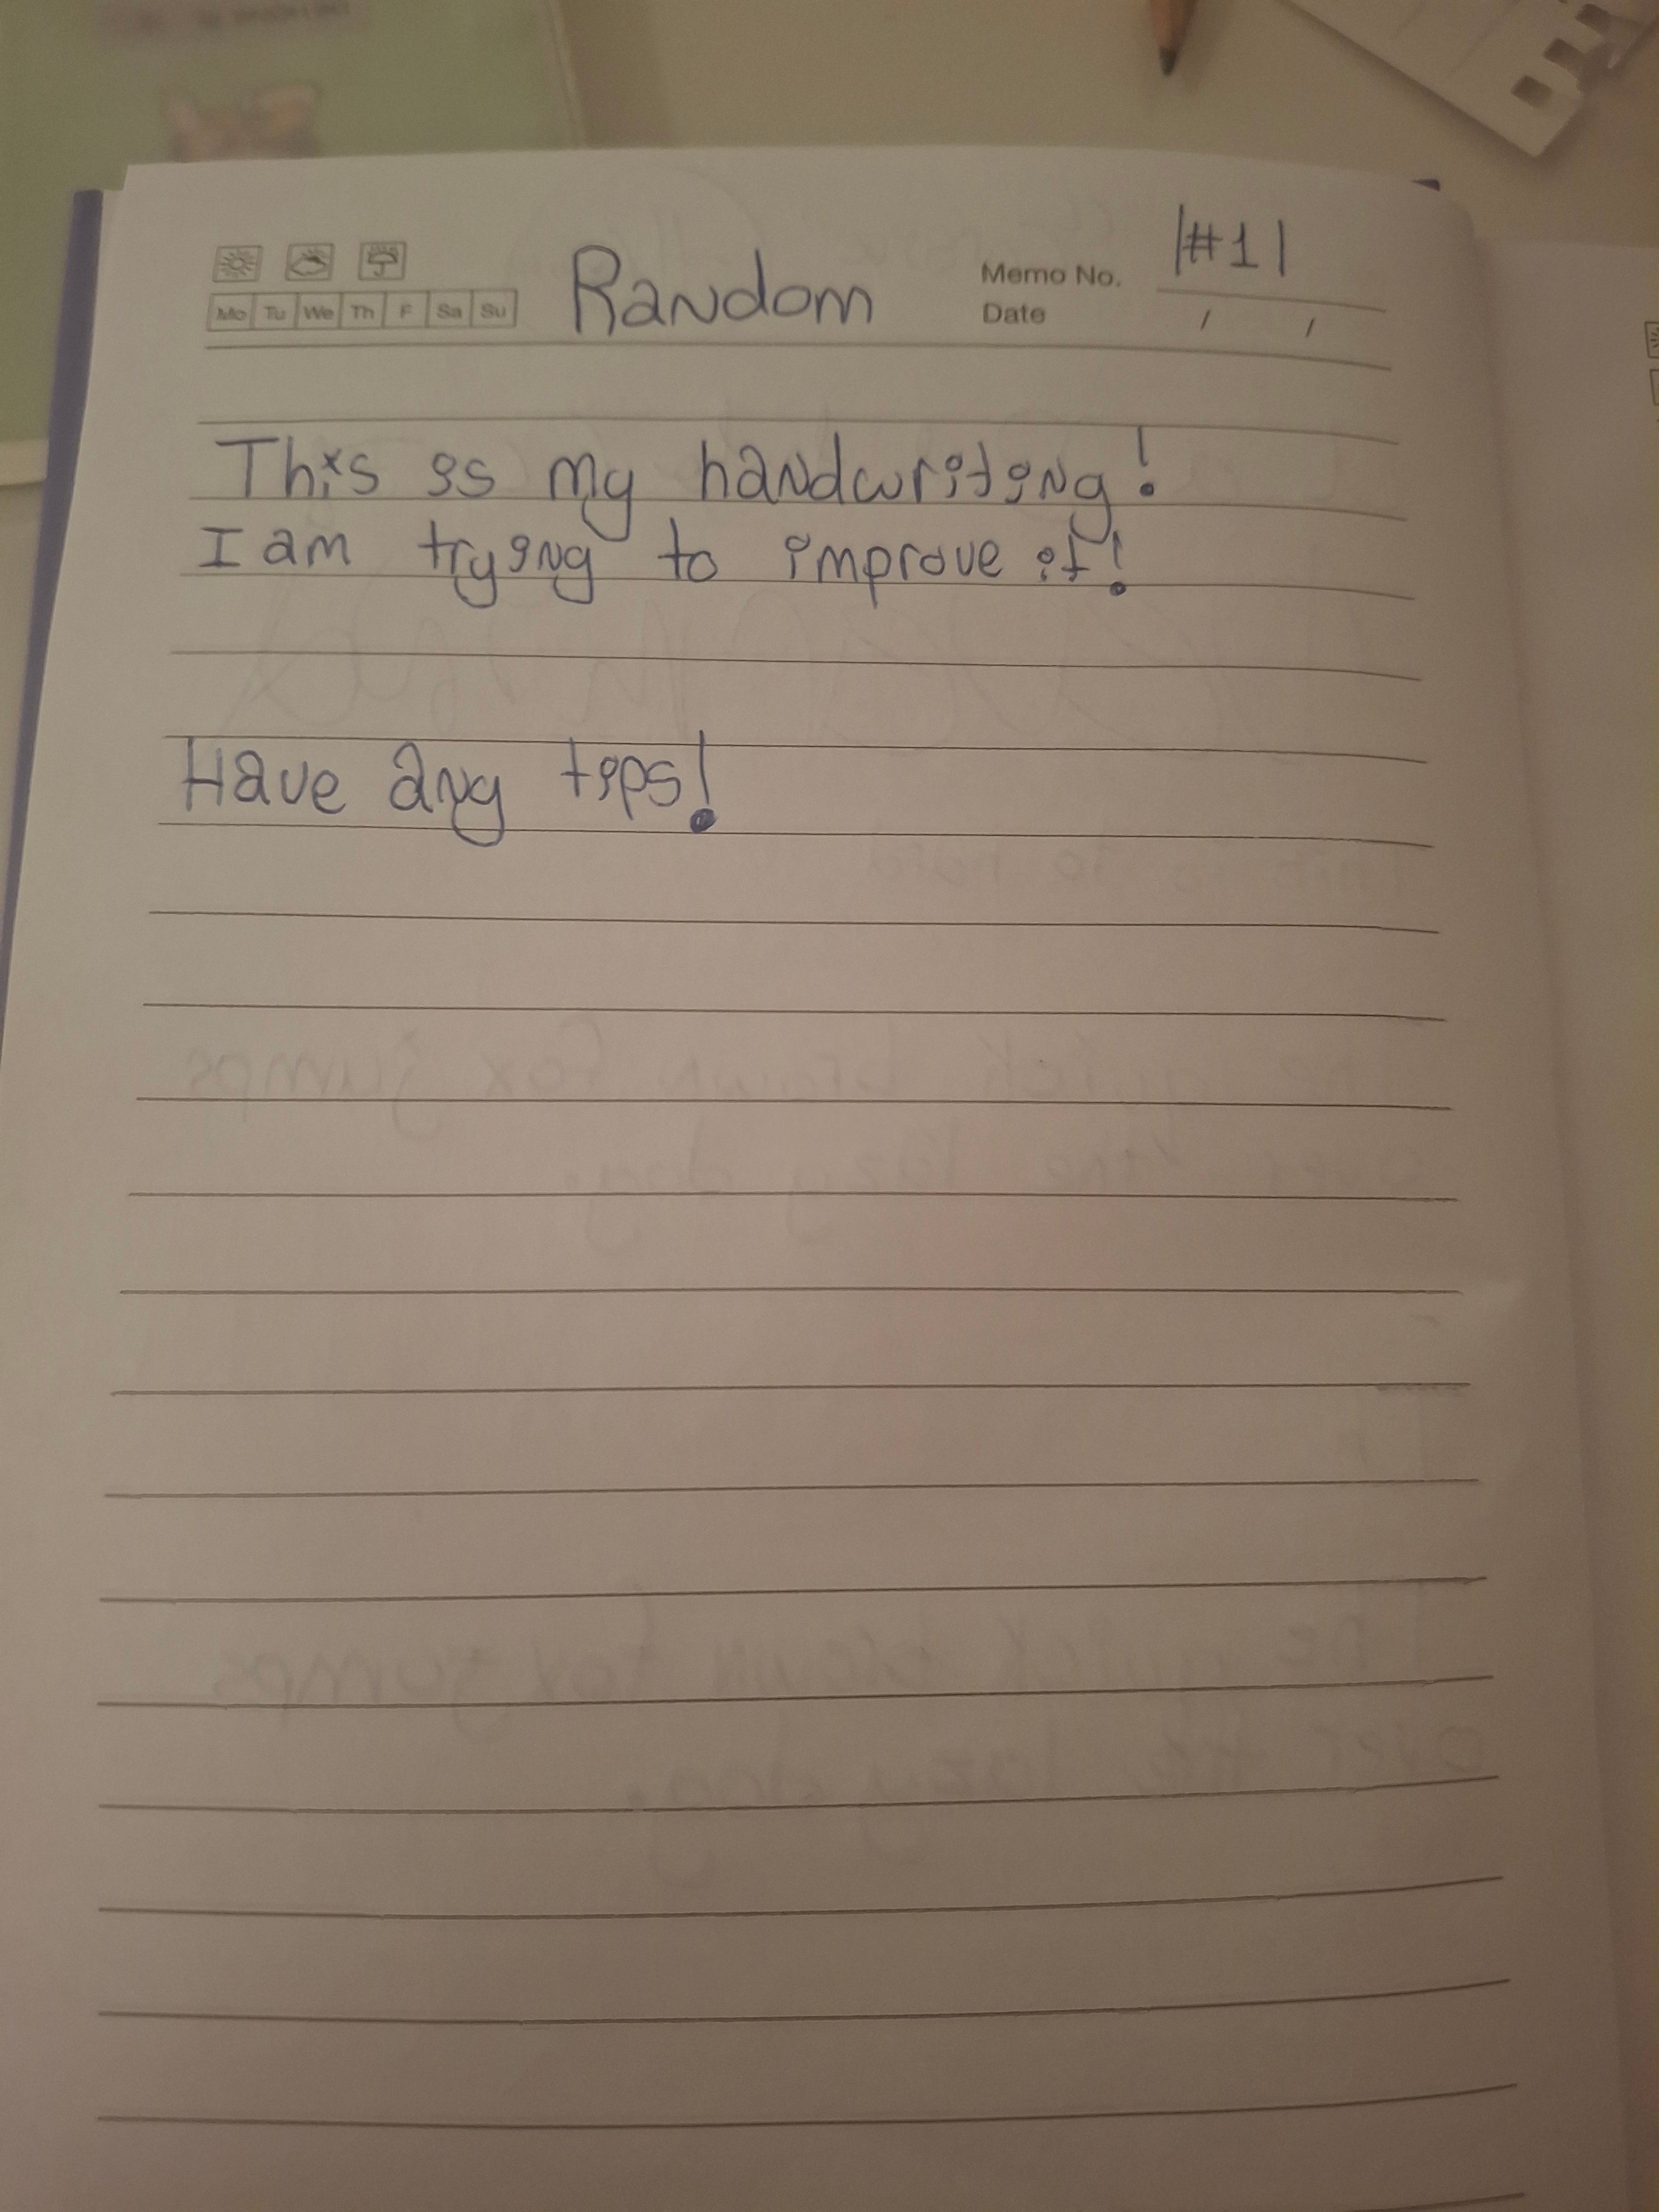 Mo Tu We Th F Sa Su
Random
Memo No. |#1|
Date / /
This is my handwriting!
I am trying to improve it!
Have any tips!